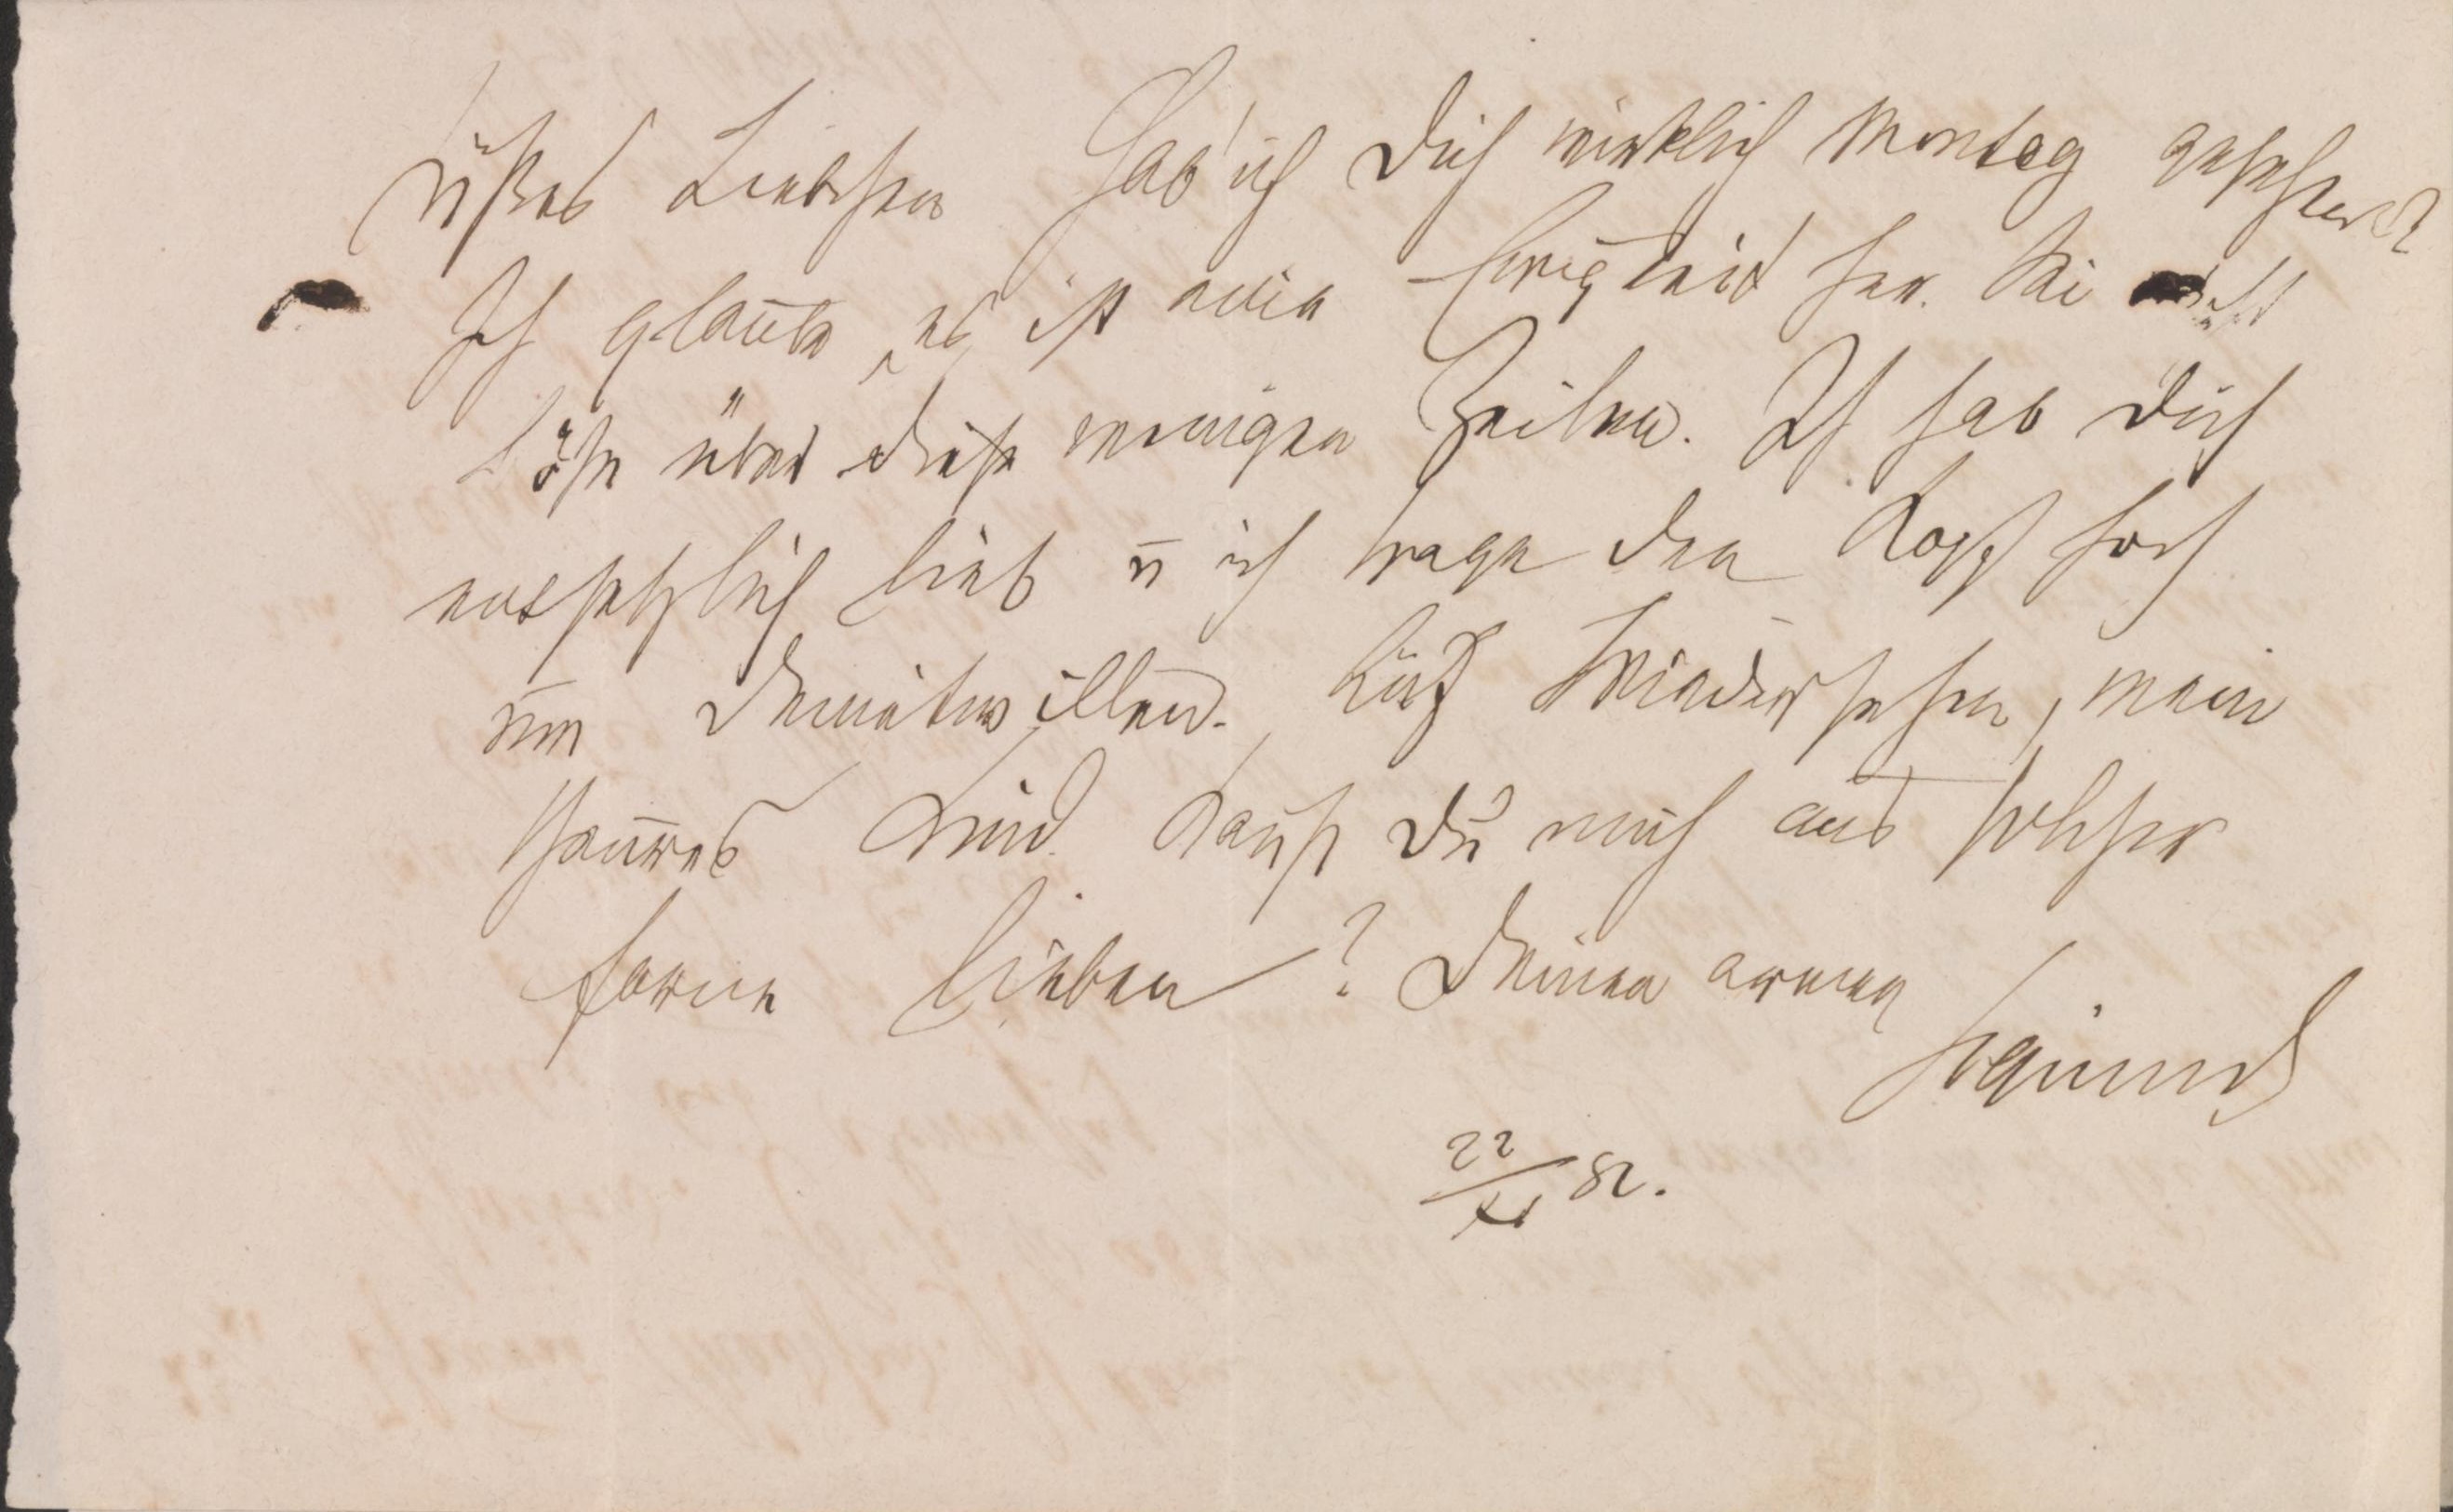 süßes Liebchen Hab' ich Dich wirklich Montag gesehen?
Ich glaube es ist eine Ewigkeit her. Sei nicht
böse über diese wenigen Zeilen. Ich hab Dich
entsetzlich lieb u ich trage den Kopf hoch
um Deinetwillen. Auf Wiedersehen, mein
theures Kind. Kanst Du mich aus solcher
Ferne lieben? Deinen armen
Sigmund
22/XI 82.